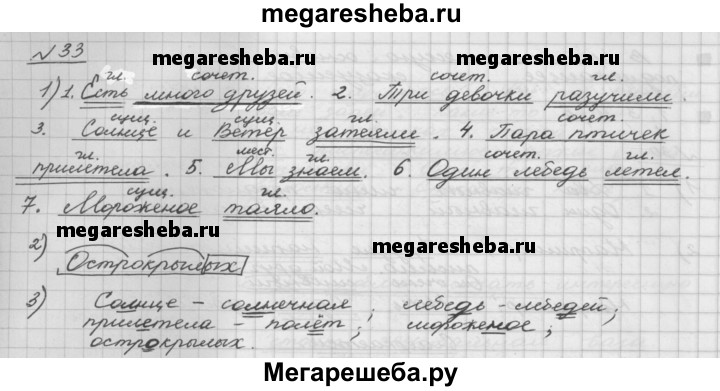 megaresheba.ru
№33
megaresheba.ru megaresheba.ru
гл. сочет. сочет. гл.
1) 1. Есть много друзей. 2. Три девочки разучили.
сущ. сущ. сочет.
3. Солнце и Ветер затеяли. 4. Пара птичек
гл. мест. гл. сочет. гл.
прилетела. 5. Мы знаем. 6. Один лебедь летел.
сущ. гл.
7. Мороженое таяло.
megaresheba.ru megaresheba.ru
2) Острокрылых
3) Солнце – солнечная; лебедь – лебедей;
прилетела – полёт; мороженое;
острокрылых.
megaresheba.ru megaresheba.ru
Мегарешеба.ру